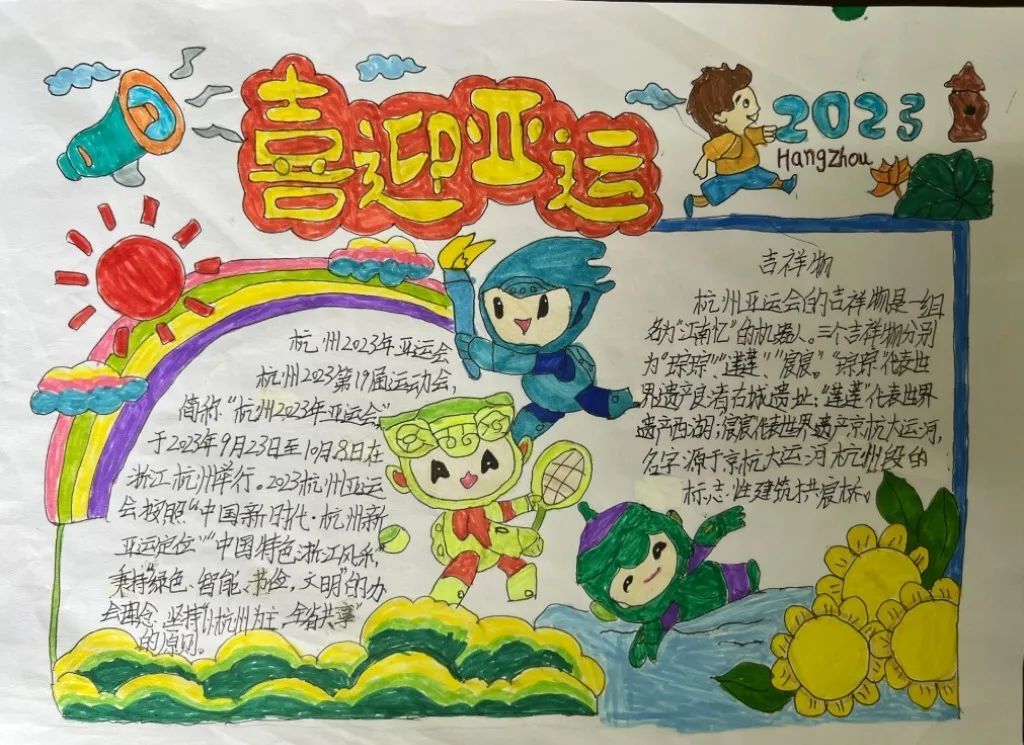 喜迎亚运
2023
Hangzhou
杭州2023年亚运会
杭州2023第19届运动会,
简称“杭州2023年亚运会”
于2023年9月23日至10月8日在
浙江杭州举行。2023杭州亚运
会按照“中国新时代·杭州新
亚运定位”“中国特色浙江风采”
秉持“绿色、智能、节俭,文明”的办
会理念,坚持“以杭州为主,全省共享”
的原则。
吉祥物
杭州亚运会的吉祥物是一组
名为“江南忆”的机器人。三个吉祥物分别
为“琮琮”“莲莲”、“宸宸”。“琮琮”代表世
界遗产良渚古城遗址;“莲莲”代表世界
遗产西湖;宸宸代表世界遗产京杭大运河,
名字源于京杭大运河杭州段的
标志性建筑拱宸桥。